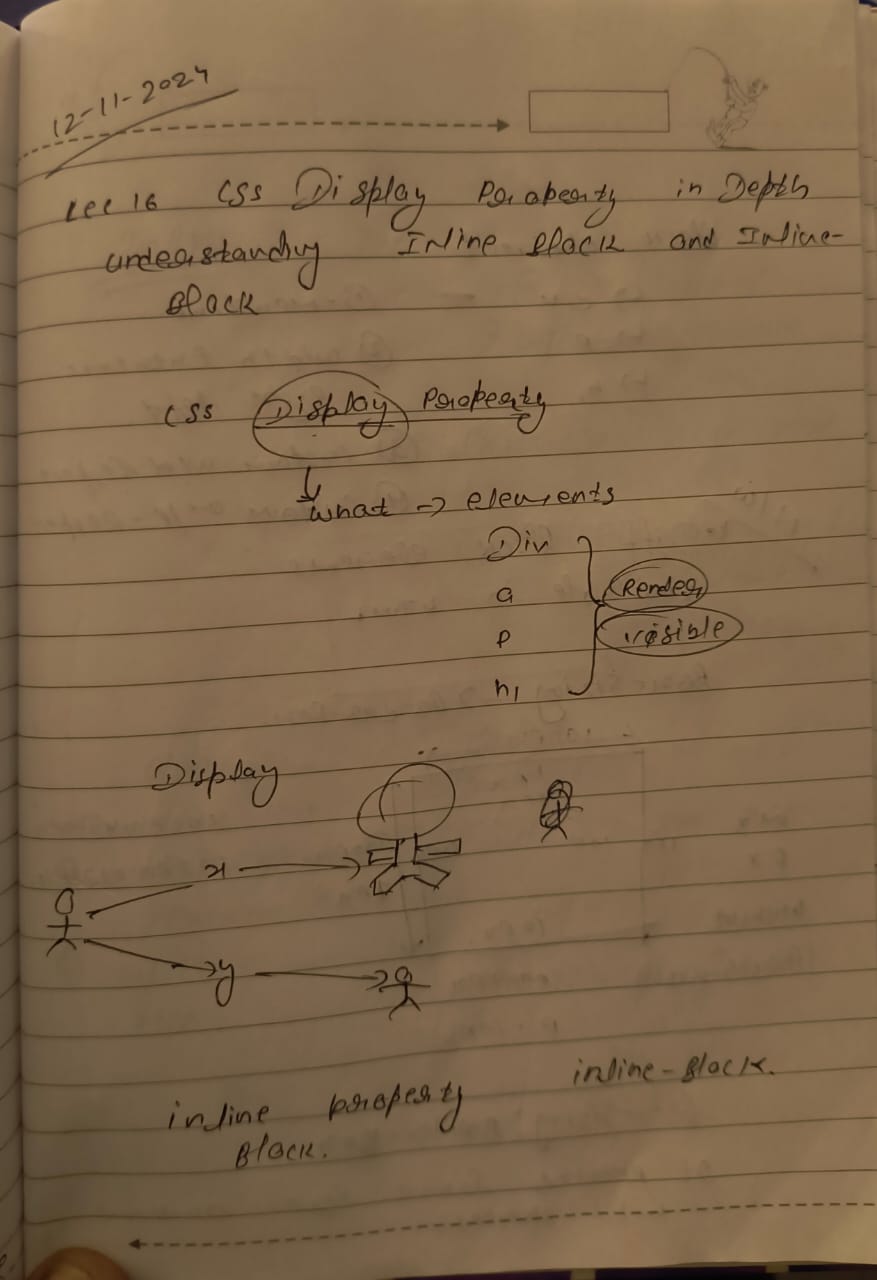 12-11-2024
Lec 16 CSS Display Property in Depth
understanding Inline Block and Inline-
Block
CSS Display Property
what → elements
Div
a
Render
P
visible
h1
Display
x
y
inline-Block.
inline property
Block.